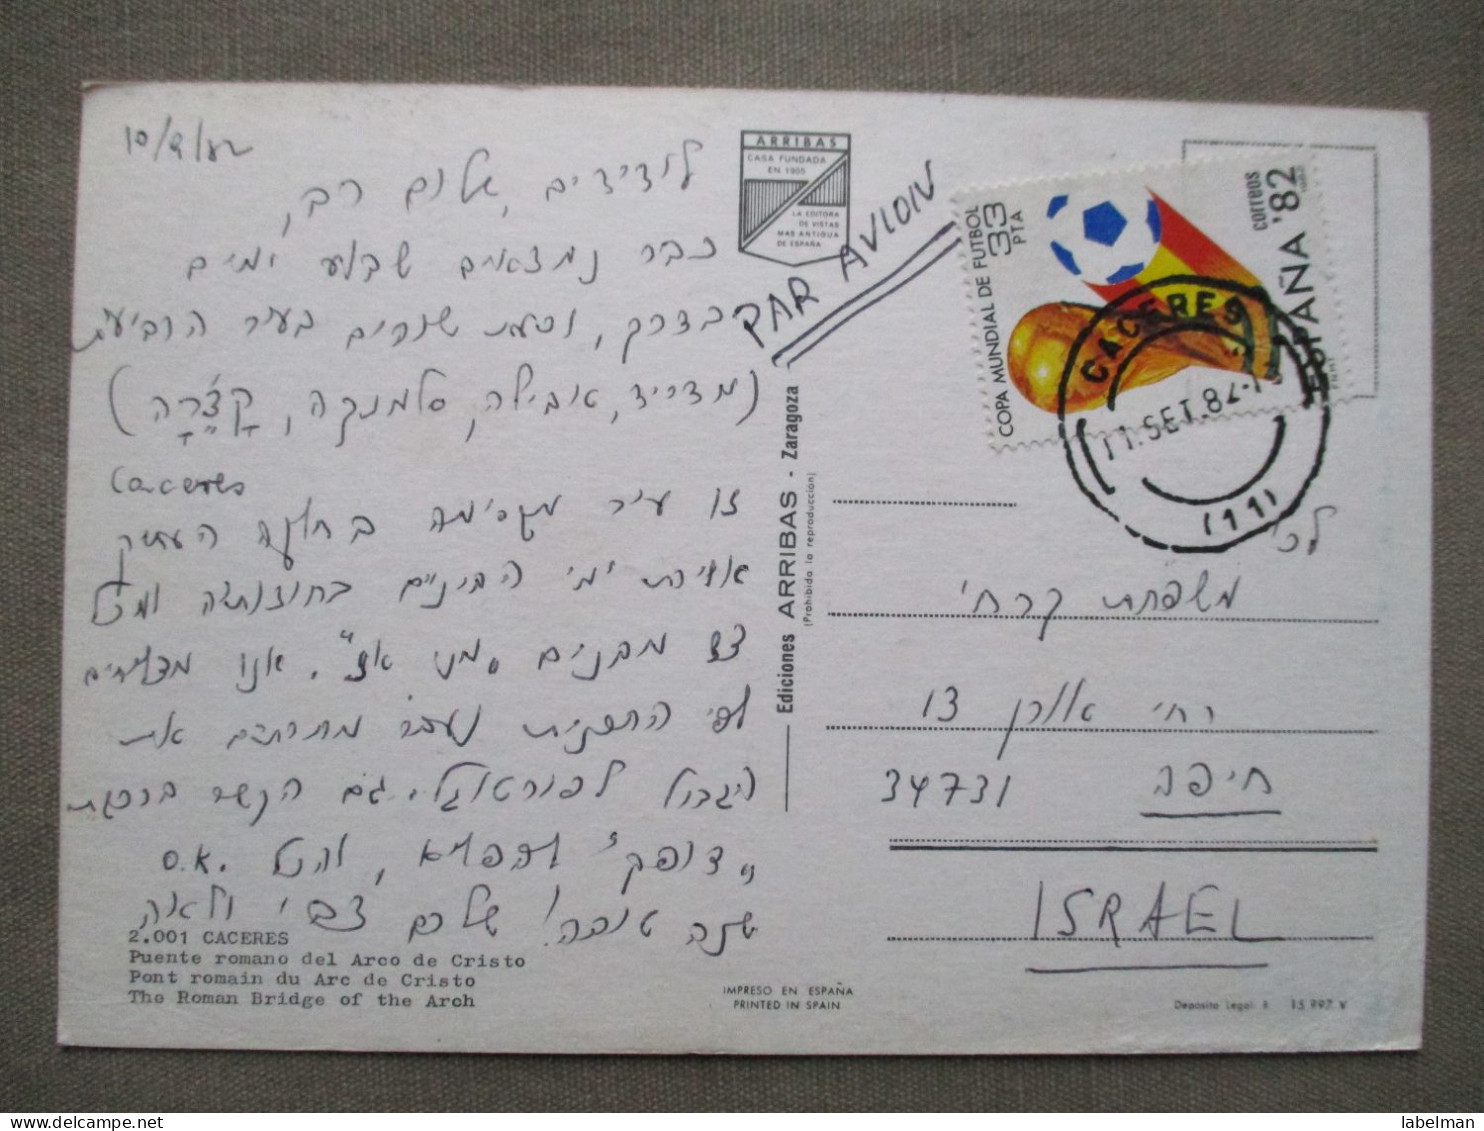 10/9/82
לידידים, שלום רב,
כבר נמצאים שבוע ימים
בדרך, וכעת שוהים בעיר הרביעית
(מדריד, אבילה, סלמנקה, קצרה)
Caceres
זו עיר מקסימה בחלקה העתיק
אוירת ימי הביניים בחוצותיה
מבנים אנו
לפי התכנית נעבור מחרתיים את
הגבול לפורטוגל. גם הקשר ברכבת
"דופק" והכל O.K.
שנה טובה! שלכם צבי ולאה
2.001 CACERES
Puente romano del Arco de Cristo
Pont romain du Arc de Cristo
The Roman Bridge of the Arch
ARRIBAS
CASA FUNDADA
EN 1905
LA EDITORA
DE VISTAS
MAS ANTIGUA
DE ESPAÑA
PAR AVION
Ediciones ARRIBAS - Zaragoza
(Prohibida la reproducción)
IMPRESO EN ESPAÑA
PRINTED IN SPAIN
COPA MUNDIAL DE FUTBOL
33
PTA
correos
ESPAÑA '82
CACERES
11. SET. 82
(11)
לכ'
משפחת קרח'
רח' אורן 13
חיפה 34731
ISRAEL
Deposito Legal B 15.997 V
labelman